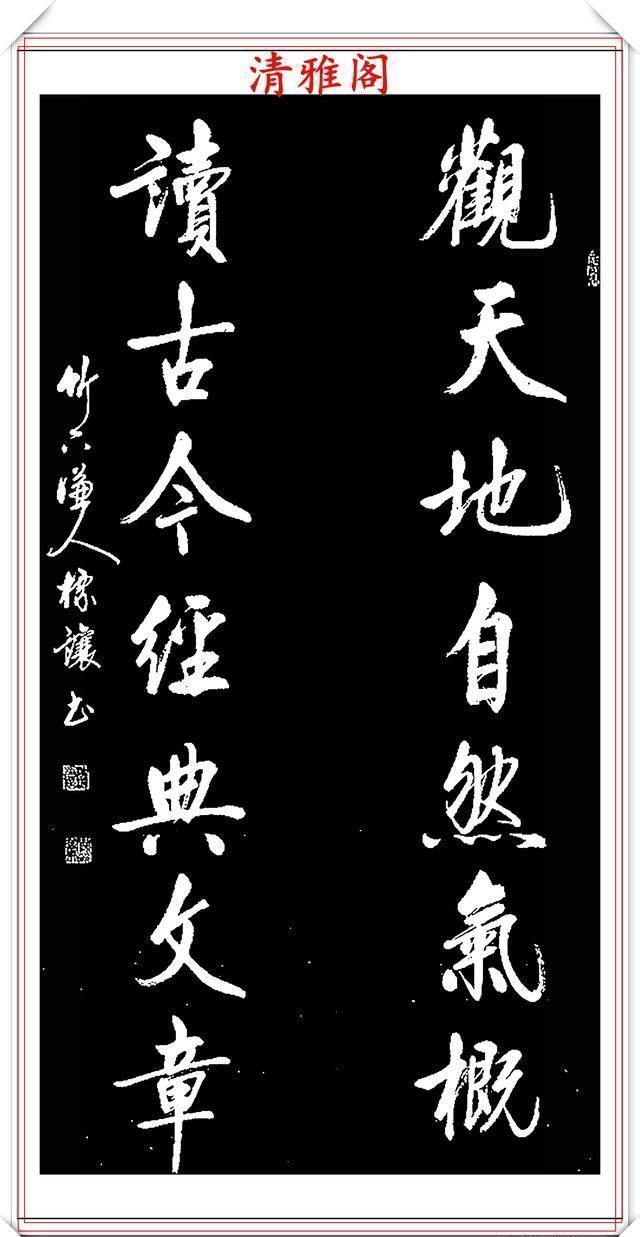 清雅阁
觀天地自然氣概
讀古今經典文章
竹六謙人 讓书